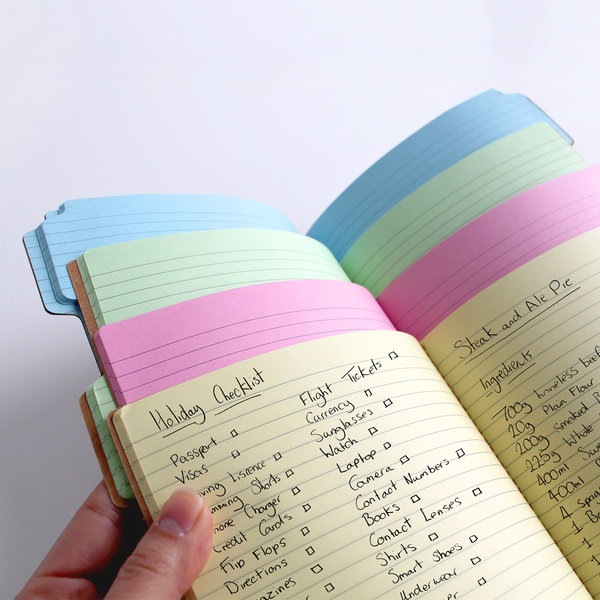 Holiday Checklist
Passport
Visas
Lisrence
Shorts
Charger
Credit Cards
Flip Flops
Directions
Flight Tickets
Currency
Sunglasses
Watch
Laptop
Camera
Contact Numbers
Books
Contact Lenses
Shirts
Smart Shoes
Underwear
Steak and Ale Pie
Ingredients
700g boneless beef
20g Plain Flour
200g Smoked
225g White
400ml
400ml
4
1
1